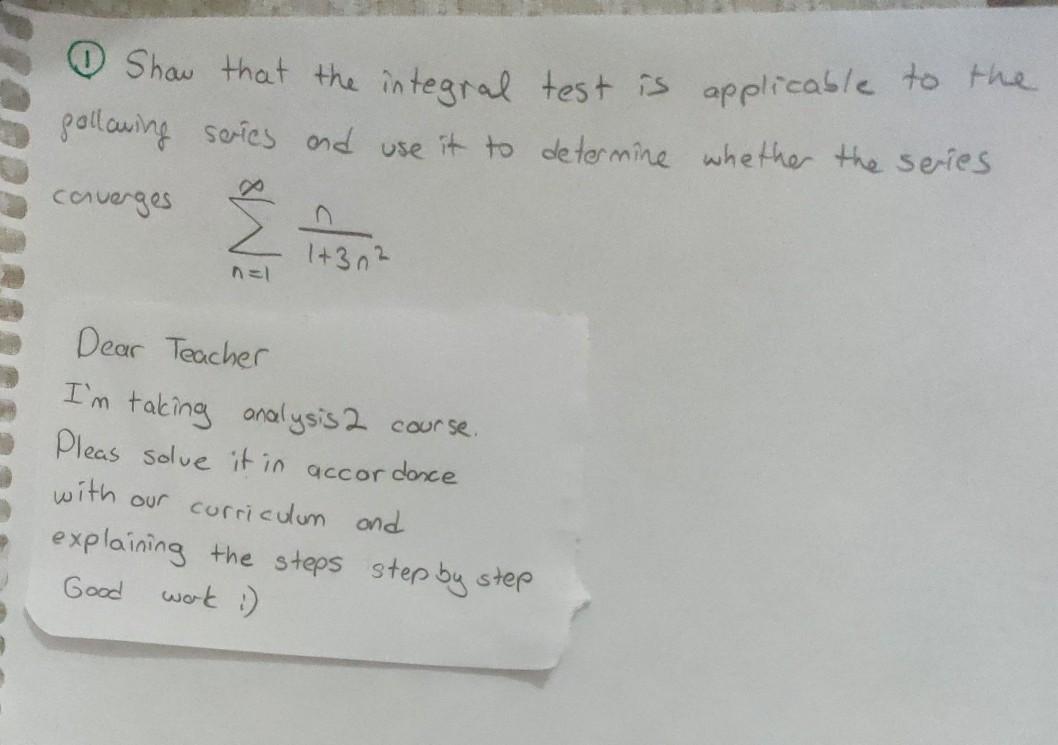 ① Show that the integral test is applicable to the
following series and use it to determine whether the series
converges ∞ ∑ n=1 n/1+3n²
Dear Teacher
I'm taking analysis2 course.
Pleas solve it in accordance
with our curriculum and
explaining the steps step by step
Good work :)